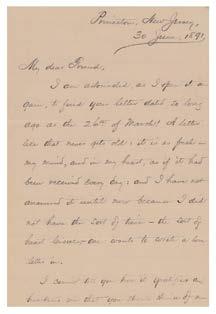 Princeton, New Jersey,
30 June, 1891,
My dear Friend,
I am astonished, as I open it a-
gain, to find your letter dated so long
ago as the 26th of March! A letter
like that never gets old: it is as fresh in
my mind, and in my heart, as if it had
been received every day: and I have not
answered it until now because I did
not have the sort of time – the sort of
heart leisure – one wants to write a love
letter in.
I cannot tell you how it
that you